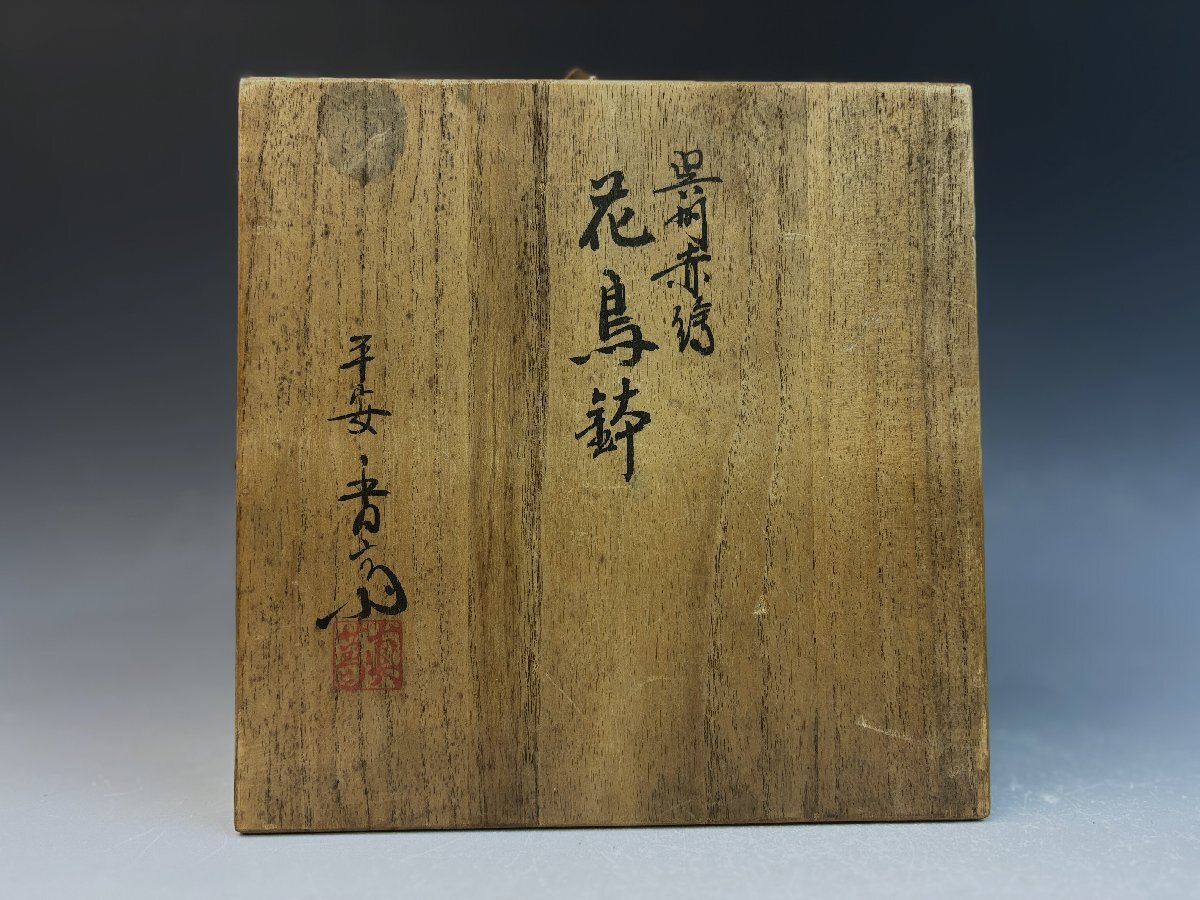 呉州赤繪
花鳥鉢
平安